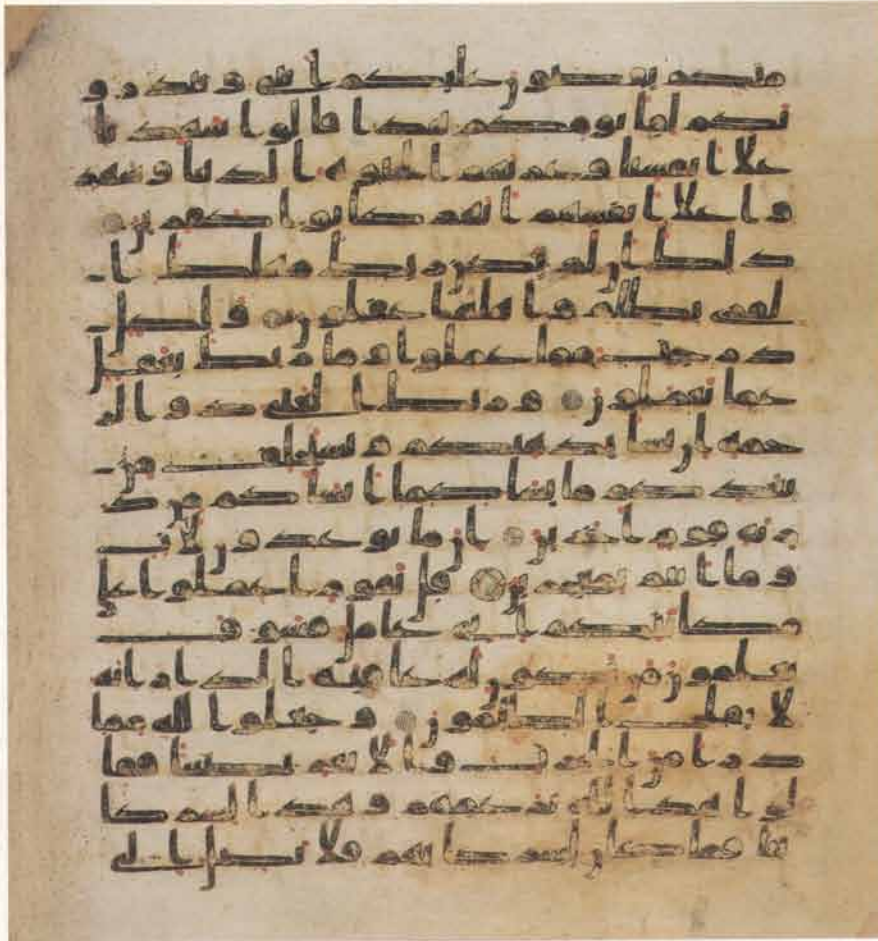 منكم يقصون عليكم ايتي وينذرو
نكم لقا يومكم هذا قالوا شهدنا
علا انفسنا وغرتهم الحيوه الدنيا وشهد
وا علا انفسهم انهم كانوا كفرين
ذلك ان لم يكن ربك مهلك ا
لقرى بظلم واهلها غفلون ولكل
درجت مما عملوا وما ربك بغفل
عما يعملون وربك الغني ذو الر
حمه ان يشا يذهبكم ويستخلف من
بعدكم ما يشا كما انشاكم من ذ
ريه قوم اخرين ان ما توعدون لات
وما انتم بمعجزين قل يقوم اعملوا على
مكانتكم اني عامل فسوف
تعلمون من تكون له عقبه الدار انه
لا يفلح الظلمون وجعلوا لله مما
ذرا من الحرث والانعم نصيبا فقا
لوا هذا لله بزعمهم وهذا لشركا
ئنا فما كان لشركائهم فلا يصل الى